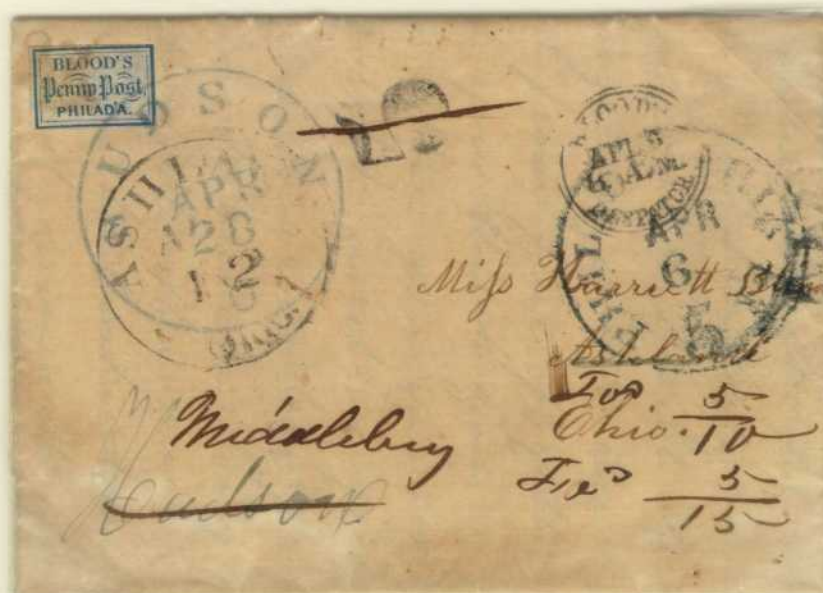 BLOOD'S
Penny Post,
PHILAD'A.
HUDSON
APR
28
ASHLAND
APR
12
OHIO.
10
BLOOD'S
DESPATCH
APR
6
5
Miſs Harriett
Ashland
Ohio.
For 5
10
5
15
Middlebury
Hudson